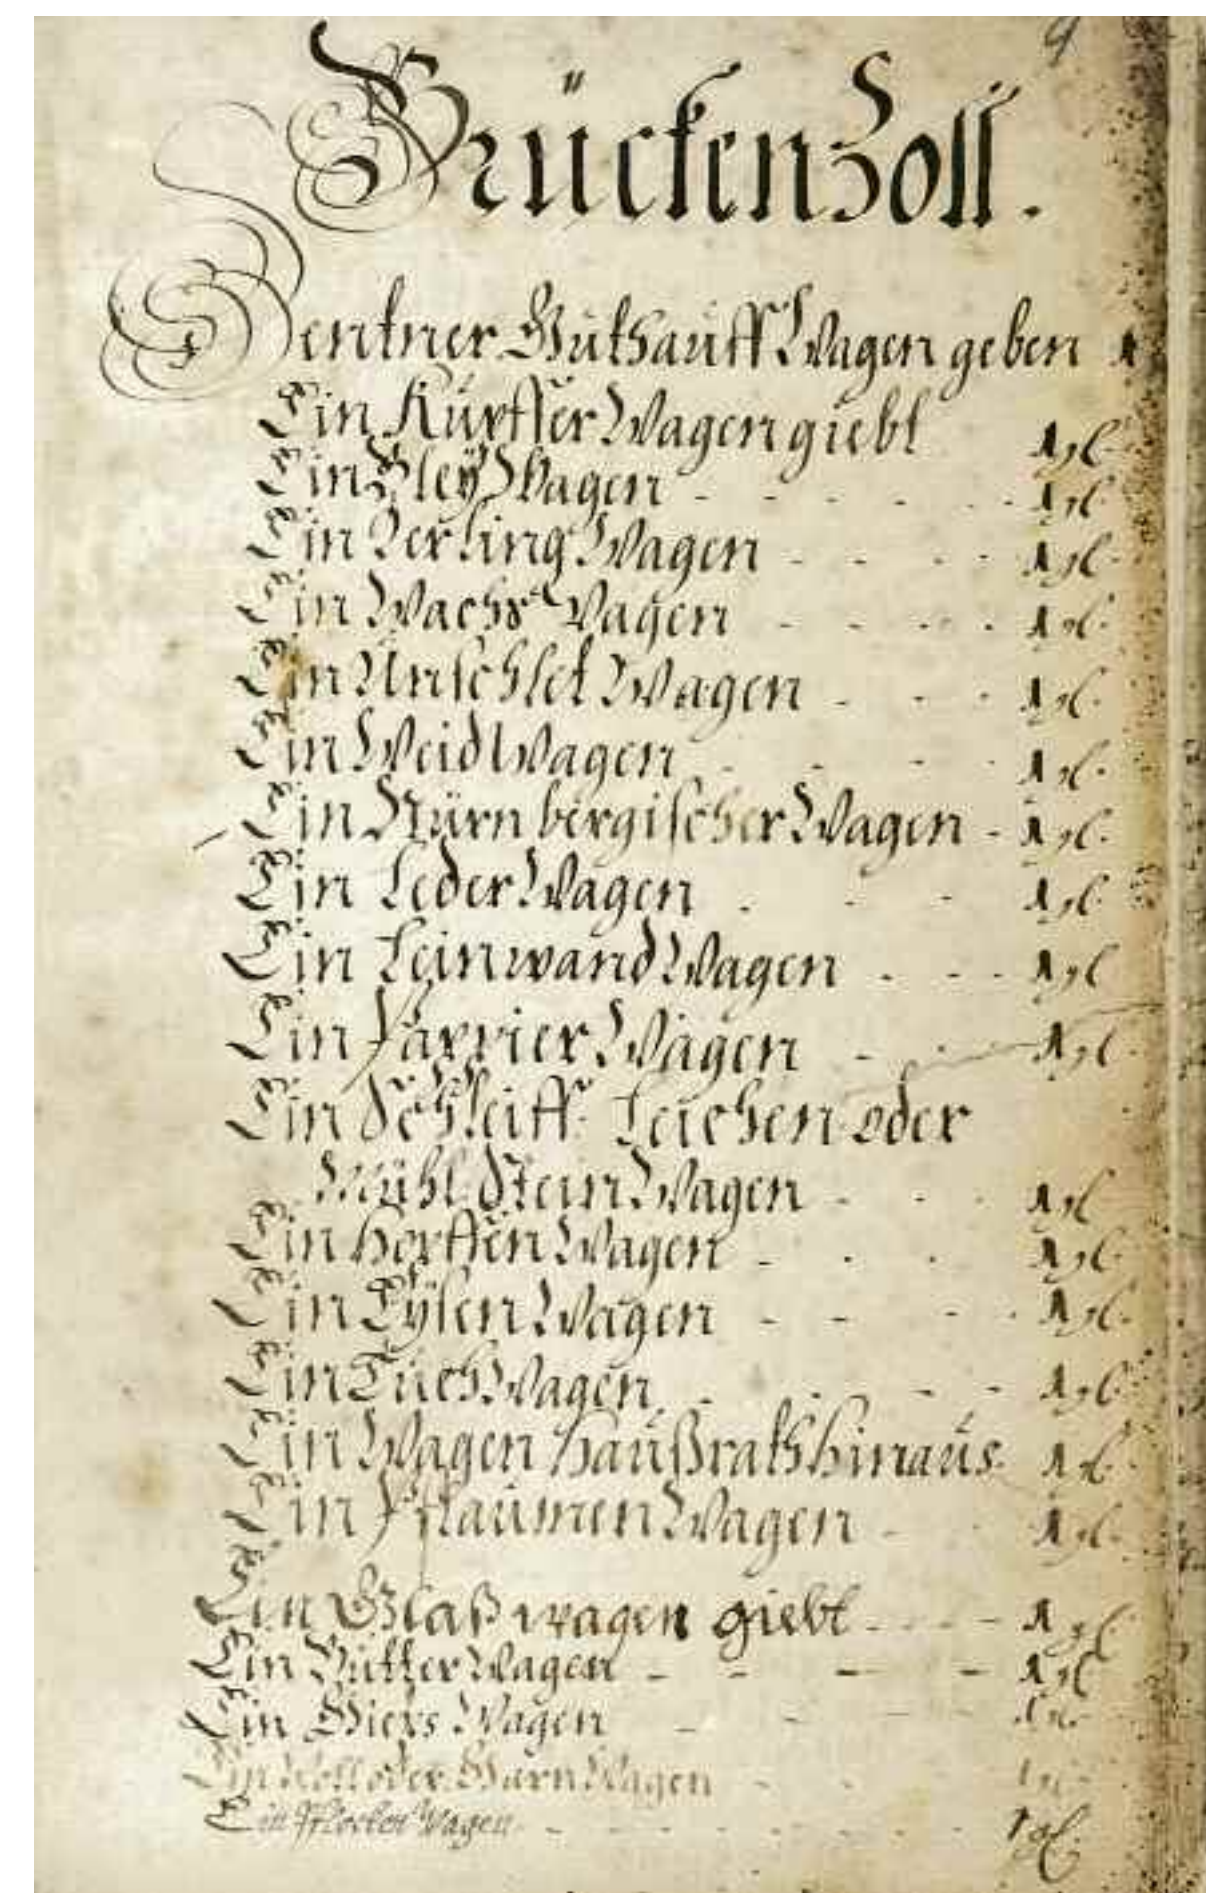 9
Brückenzoll.
Zentner Guth auff Wagen geben 1
Ein Kupffer Wagen giebt 1 gl.
Ein Bley Wagen - - - - - 1 gl.
Ein Zerling Wagen - - - - 1 gl.
Ein Wachs Wagen - - - - 1 gl.
Ein Unschlet Wagen - - - 1 gl.
Ein Weid Wagen - - - - 1 gl.
Ein Nürnbergischer Wagen - 1 gl.
Ein Leder Wagen - - - 1 gl.
Ein Leinwand Wagen - - - 1 gl
Ein Pappier Wagen - - 1 gl.
Ein Schleiff- Leichen oder
Mühl Stein Wagen - - - 1 gl
Ein Hopffen Wagen - - - 1 gl.
Ein Eysen Wagen - - - - 1 gl.
Ein Tuch Wagen - - - 1 gl.
Ein Wagen Haußrath hinaus 1 gl.
Ein Pflaumen Wagen - - 1 gl.
Ein Glaß wagen giebt - - - - 1 gl
Ein Butter Wagen - - - - 1 gl
Ein Wagen - - - -
Ein Woll oder Garn Wagen - -
Ein Wagen - - - - - - - - 1 gl.